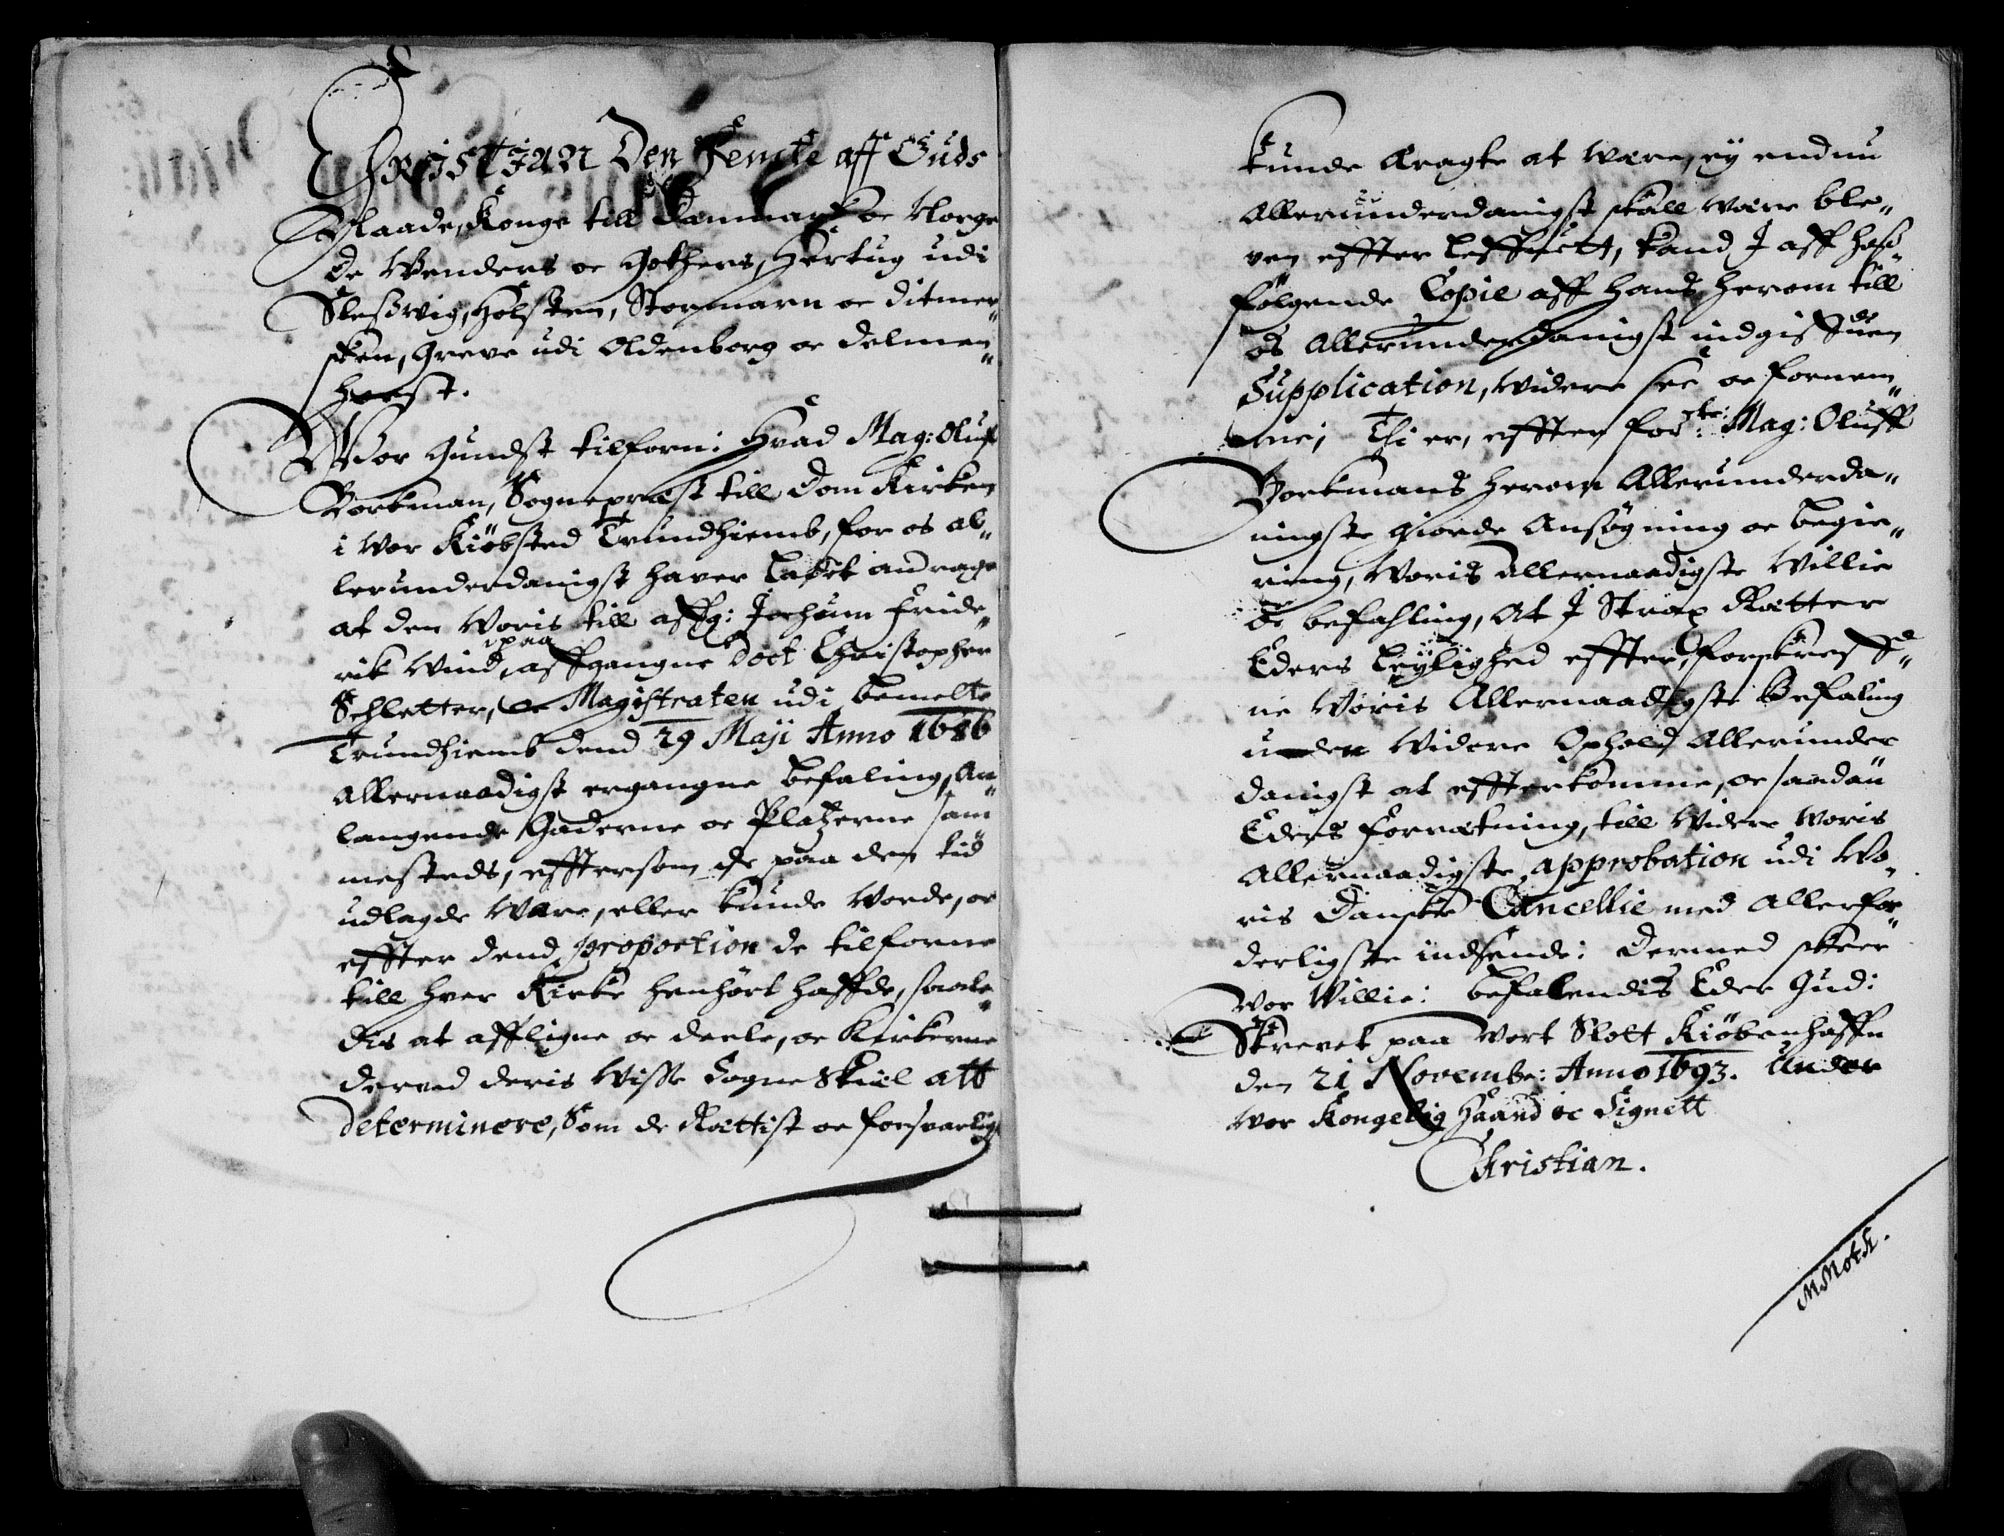 Christian Den Femte aff Guds
Naade, Konge till Danmark oc Norge
De Wenders oc Gothers, Hertug udi
Sleswig, Holsten, Stormarn oc Ditmer„
sken, Greve udi Oldenborg oc Delmen„
horst.
Wor Gundst tilforn: Hvad Mag: Oluf
Borkman, Sognepræst till Dom Kirken
i Wor Kiøbsted Trundhiemb, for os al„
lerunderdanigst haver ladet andrage
at den Woris till affg: Jochum Fride„
rik Wind, paa affgangne Doct Christopher
Schletter, oc Magistraten udi bemelte
Trundhiemb dend 29 Maji Anno 1686
Allernaadigst ergangne befaling, An„
langende Gaderne oc Platzerne sam„
mesteds, efftersom de paa den tid
udlagde Ware, eller kunde Worde, oc
effter dend proportion de tilforne
till hver Kirke henhørt haffde, saale„
dis at affligne oc deele, oc Kirkerne
derved deris Wisse Sogne Skiel att
determinere, Som de Rættist oc forsvarligst
kunde Eragte at Være, ey endnu
Allerunderdanigst skall Være ble„
ven effter Leffuett, kand I aff hoss„
følgende Copie aff hans herom till
os Allerunderdanigst indgiffuen
Supplication, Widere see oc fornem„
me; Thi er, effter forske: Mag: Oluff
Borkmans herom Allerunderda„
nigste giorde Ansøgning oc begie„
ring, Woris Allernaadigste Willie
oc befahling, At I Strax Rætter
Eders Leylighed effter, forskreff„
ne Woris Allernaadigste Befaling
uden Widere Ophold Allerunder
danigst at effterkomme, oc saadan
Eders Forrætning, till Widere Woris
Allernaadigste approbation udi Wo„
ris Danske Cancellie med Allerfor„
derligste indsende: Dermed skeer
Wor Willie: Befalendis Eder Gud:
Skrevet paa Vort Slott Kiøbenhaffn
den 21 Novembr: Anno 1693. Under
Wor Kongelig Haand oc Signett
Christian.
M Moth.